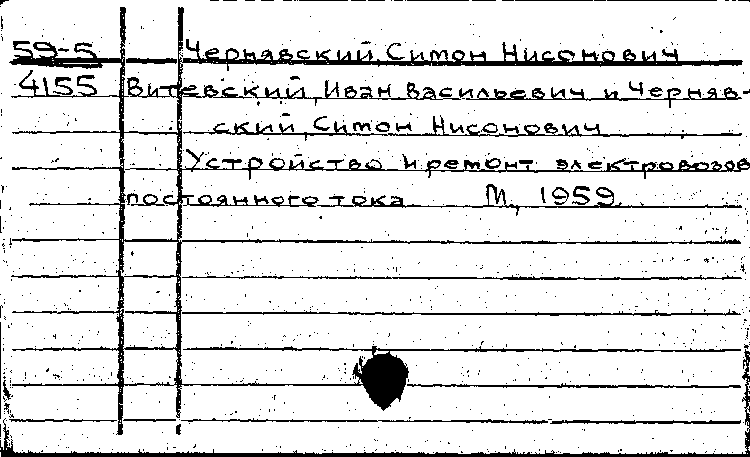 59-5 Чернявский, Симон Нисонович
4155 Витевский, Иван Васильевич и Черняв-
ский, Симон Нисонович
Устройство и ремонт электровозов
постоянного тока М., 1959.